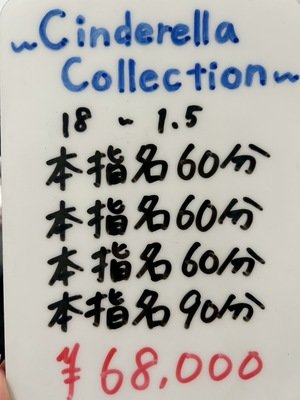 ~Cinderella
Collection~
18 ~ 1.5
本指名60分
本指名60分
本指名60分
本指名90分
¥68,000